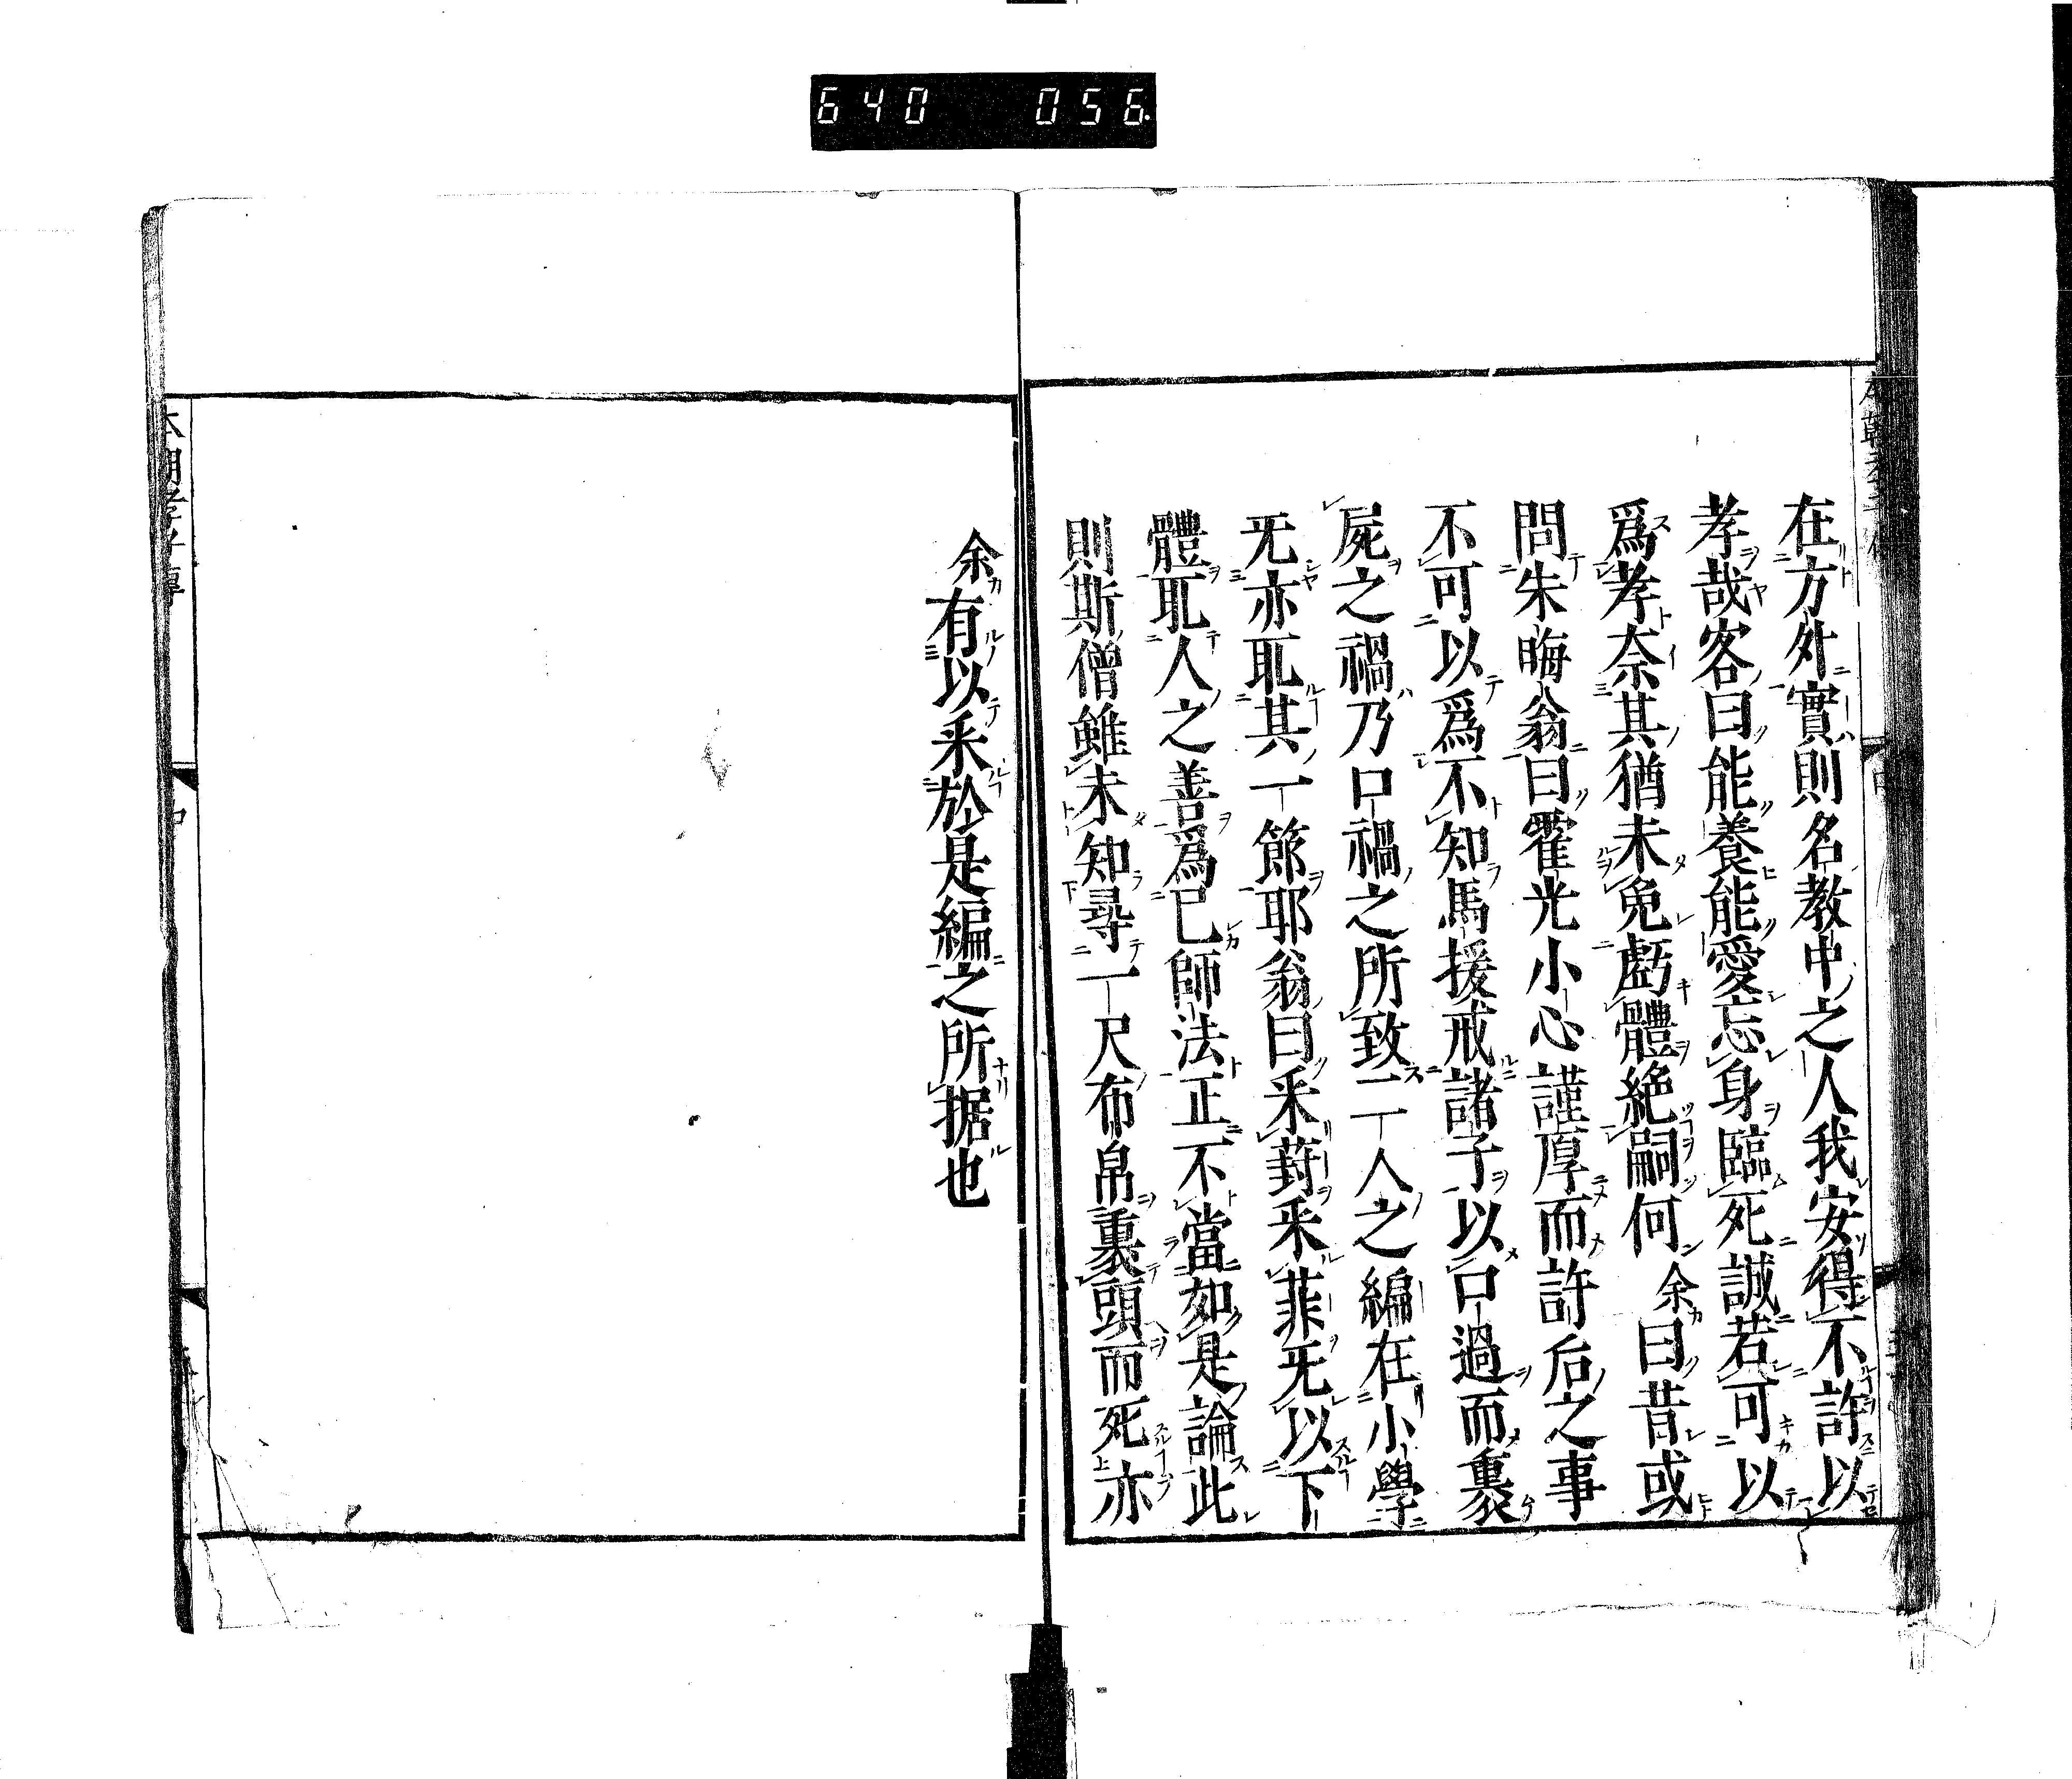 640 056
在方外實則名教中之人我安得不許以
孝哉客曰能養能愛忘身臨死誠若可以
爲孝奈其猶未免虧體絶嗣何余曰昔或
問朱晦翁曰霍光小心謹厚而許后之事
不可以爲不知馬援戒諸子以口過而裹
屍之禍乃口禍之所致二人之編在小學
无亦耻其一節耶翁曰釆葑釆菲无以下
體耻人之善爲已師法正不當如是論此
則斯僧雖未知尋一尺布帛裹頭而死亦
余有以釆於是編之所据也
本朝孝子傳
中